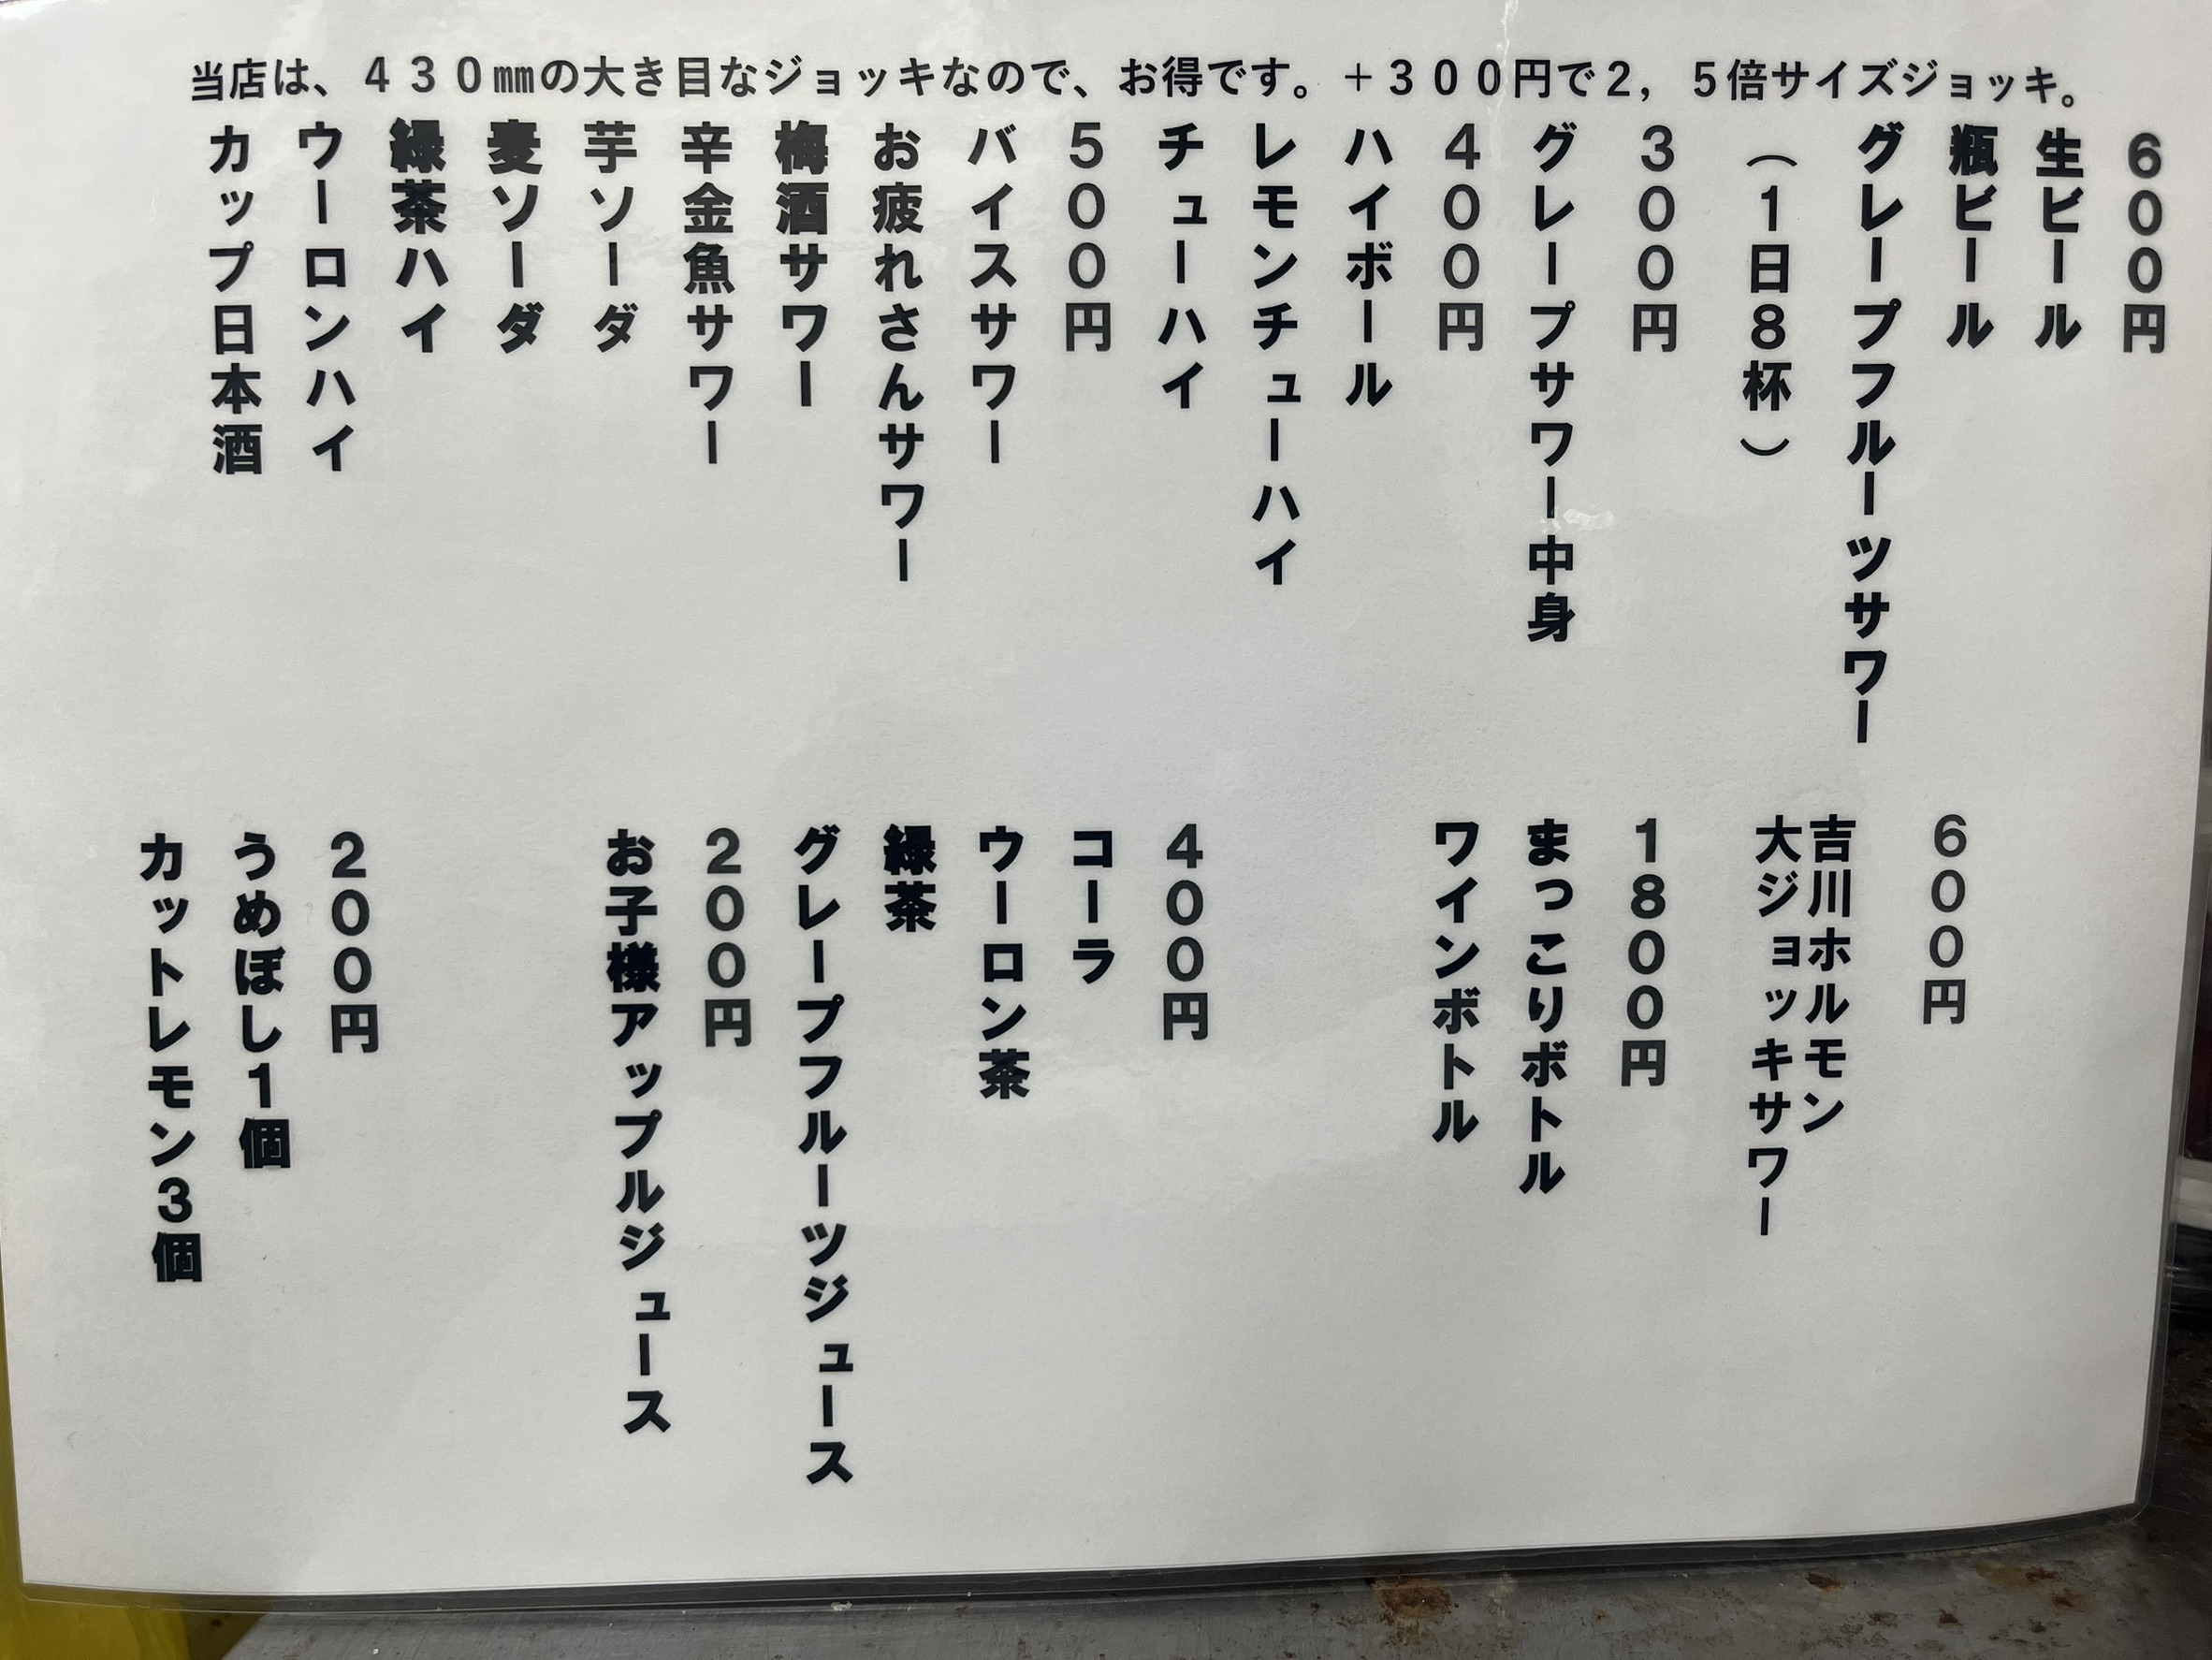 当店は、４３０㎜の大き目なジョッキなので、お得です。＋３００円で２，５倍サイズジョッキ。
６００円
生ビール
瓶ビール
グレープフルーツサワー
（１日８杯）
３００円
グレープサワー中身
４００円
ハイボール
レモンチューハイ
チューハイ
５００円
バイスサワー
お疲れさんサワー
梅酒サワー
辛金魚サワー
芋ソーダ
麦ソーダ
緑茶ハイ
ウーロンハイ
カップ日本酒
６００円
吉川ホルモン
大ジョッキサワー
１８００円
まっこりボトル
ワインボトル
４００円
コーラ
ウーロン茶
緑茶
グレープフルーツジュース
２００円
お子様アップルジュース
２００円
うめぼし１個
カットレモン３個